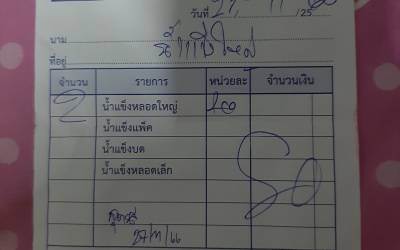 วันที่ 27 - 11 /25
นาม
ที่อยู่
จำนวน รายการ หน่วยละ จำนวนเงิน
2 น้ำแข็งหลอดใหญ่ 40
น้ำแข็งแพ็ค
น้ำแข็งบด
น้ำแข็งหลอดเล็ก
80
27/11/66